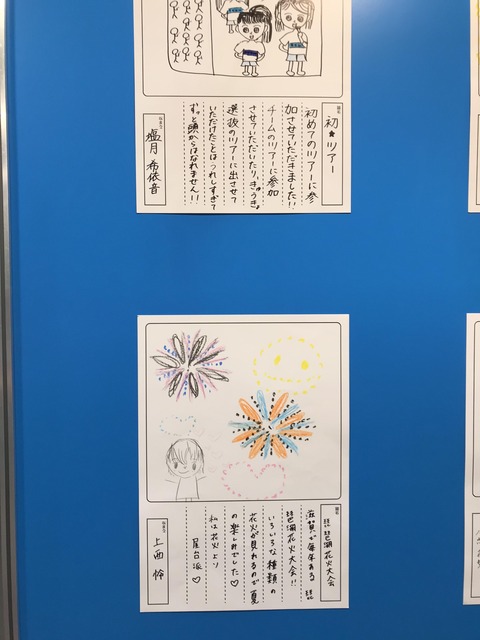 題名
初★ツアー
初めてのツアーに参
加させていただきました!!
チームのツアーに参加
させていただいたり、きゅうきょ
選抜のツアーに出させて
いただけたことはうれしすぎて
ずっと頭からはなれません!!
なまえ
塩月 希依音
題名
琵琶湖花火大会
滋賀で毎年ある 琵
琶湖花火大会!!
いろいろな種類の
花火が見れるのが夏
の楽しみでした♡
私は花火より
屋台派♡
なまえ
上西 怜